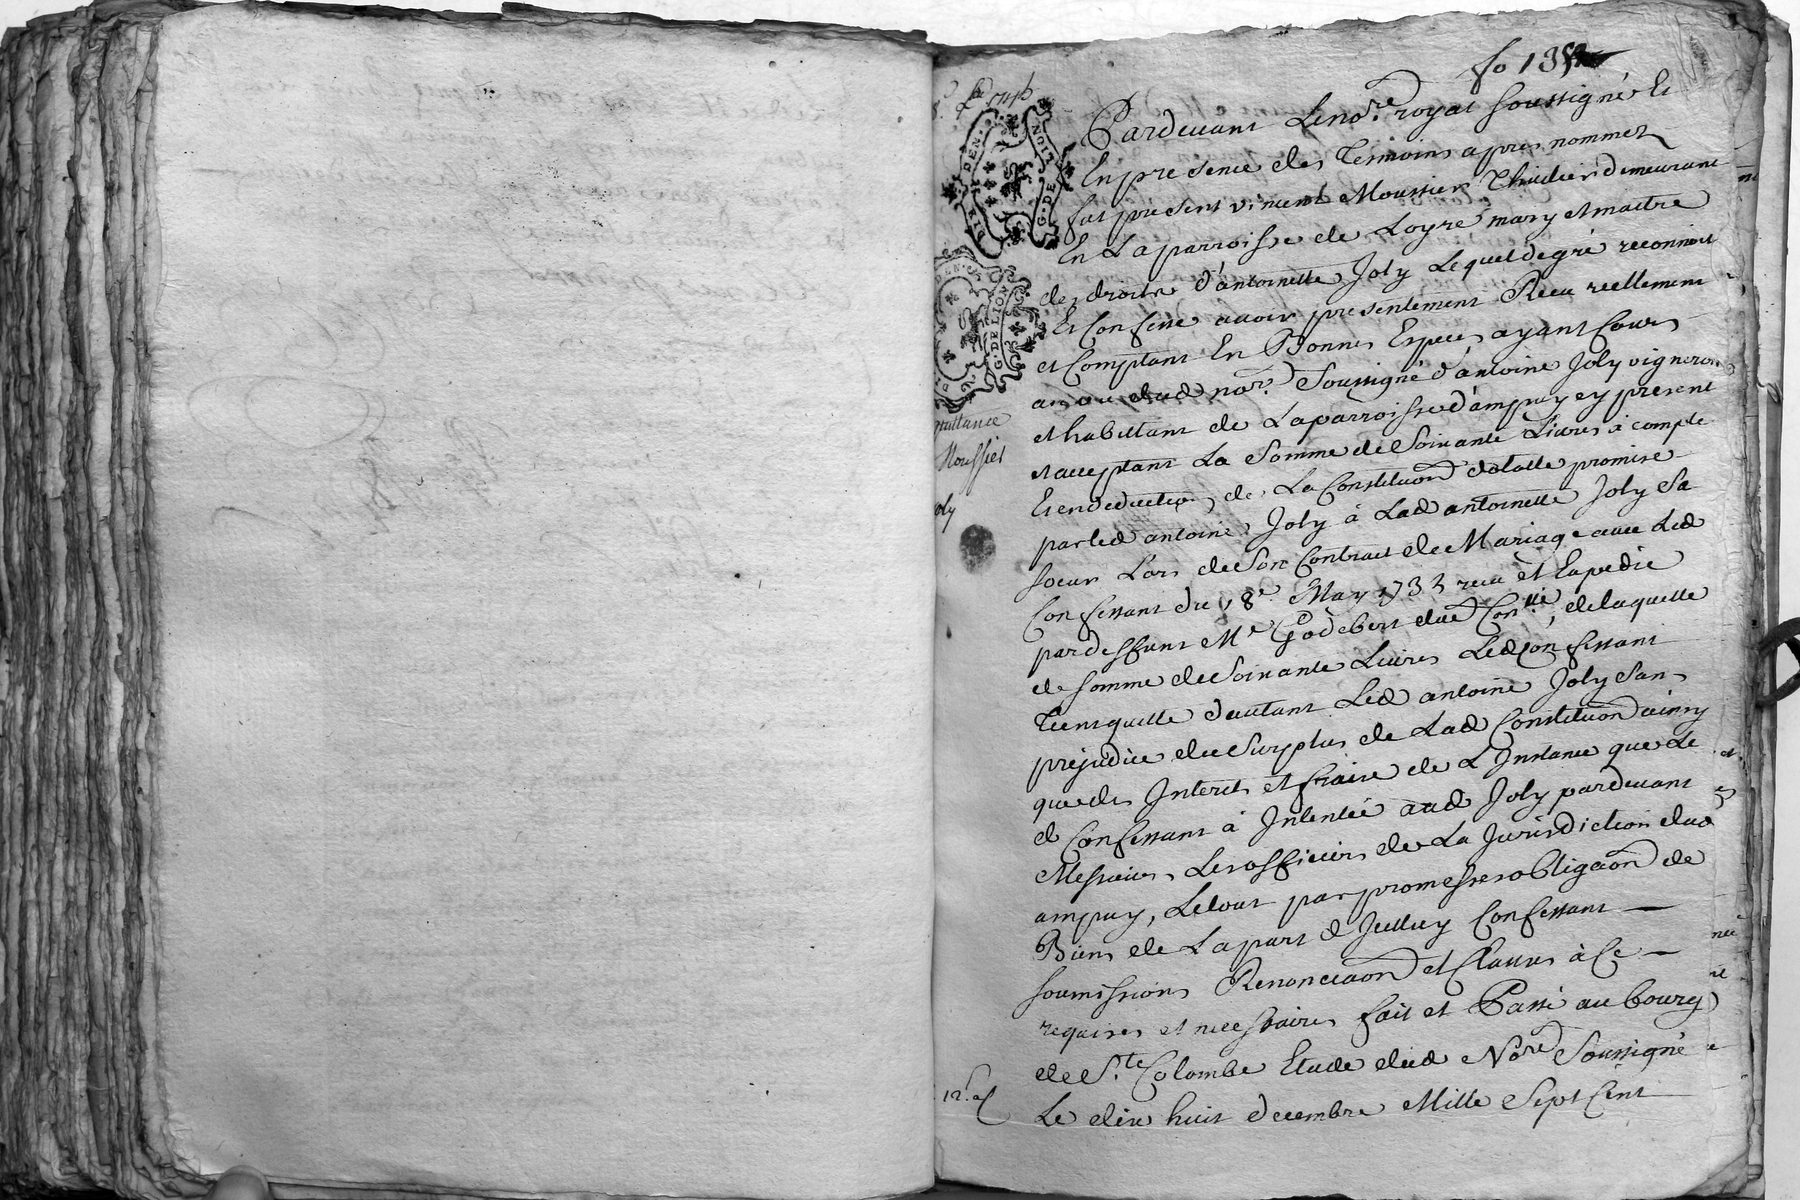 fo 135
Pardevant Le no.re royal soussigné Et
En presence des Temoins apres nommez
fut present vincent Moussier Thuilier demeurant
En La parroisse de Loyre mary et maitre
des droits d'antoinette Joly Lequel de gré reconnoit
Et Confesse avoir presentement Receu reellement
et Comptant En Bonnes Especes ayant Cours
au veu dud no.re Soussigné d'antoine Joly vigneron
et habittant de La parroisse d'ampuy cy present
et acceptant La Somme de Soixante Livres à compte
Et en deduction de La Constituon dotalle promise
par led antoine Joly à Lad antoinette Joly Sa
soeur Lors de Son Contract de Mariage avec Led
Confessant du 18e May 1733 receu et Expedié
par deffunt Me Godebert dud Con.lle de laquelle
de somme de Soixante Livres Led Confessant
Tient quitte d'autant Led antoine Joly Sans
prejudice du Surplus de Lad Constituon ainsy
que des Interets et fraix de L'Instance que Le
d Confessant à Intentée aud Joly pardevant
Messieurs Les officiers de La Jurisdiction dud
ampuy, Le tout par promesse obligaon de
Biens de La part d Jcelluy Confessant
soumissions Renonciaon et Clauses à Ce
requises et necessaires fait et Passé au bourg
de S.te Colombe Etude dud No.re Soussigné
Le dix huit decembre Mille Sept Cent
quittance
Moussier
oly
12.s
G. DE LION
G. DE LION
DEN.